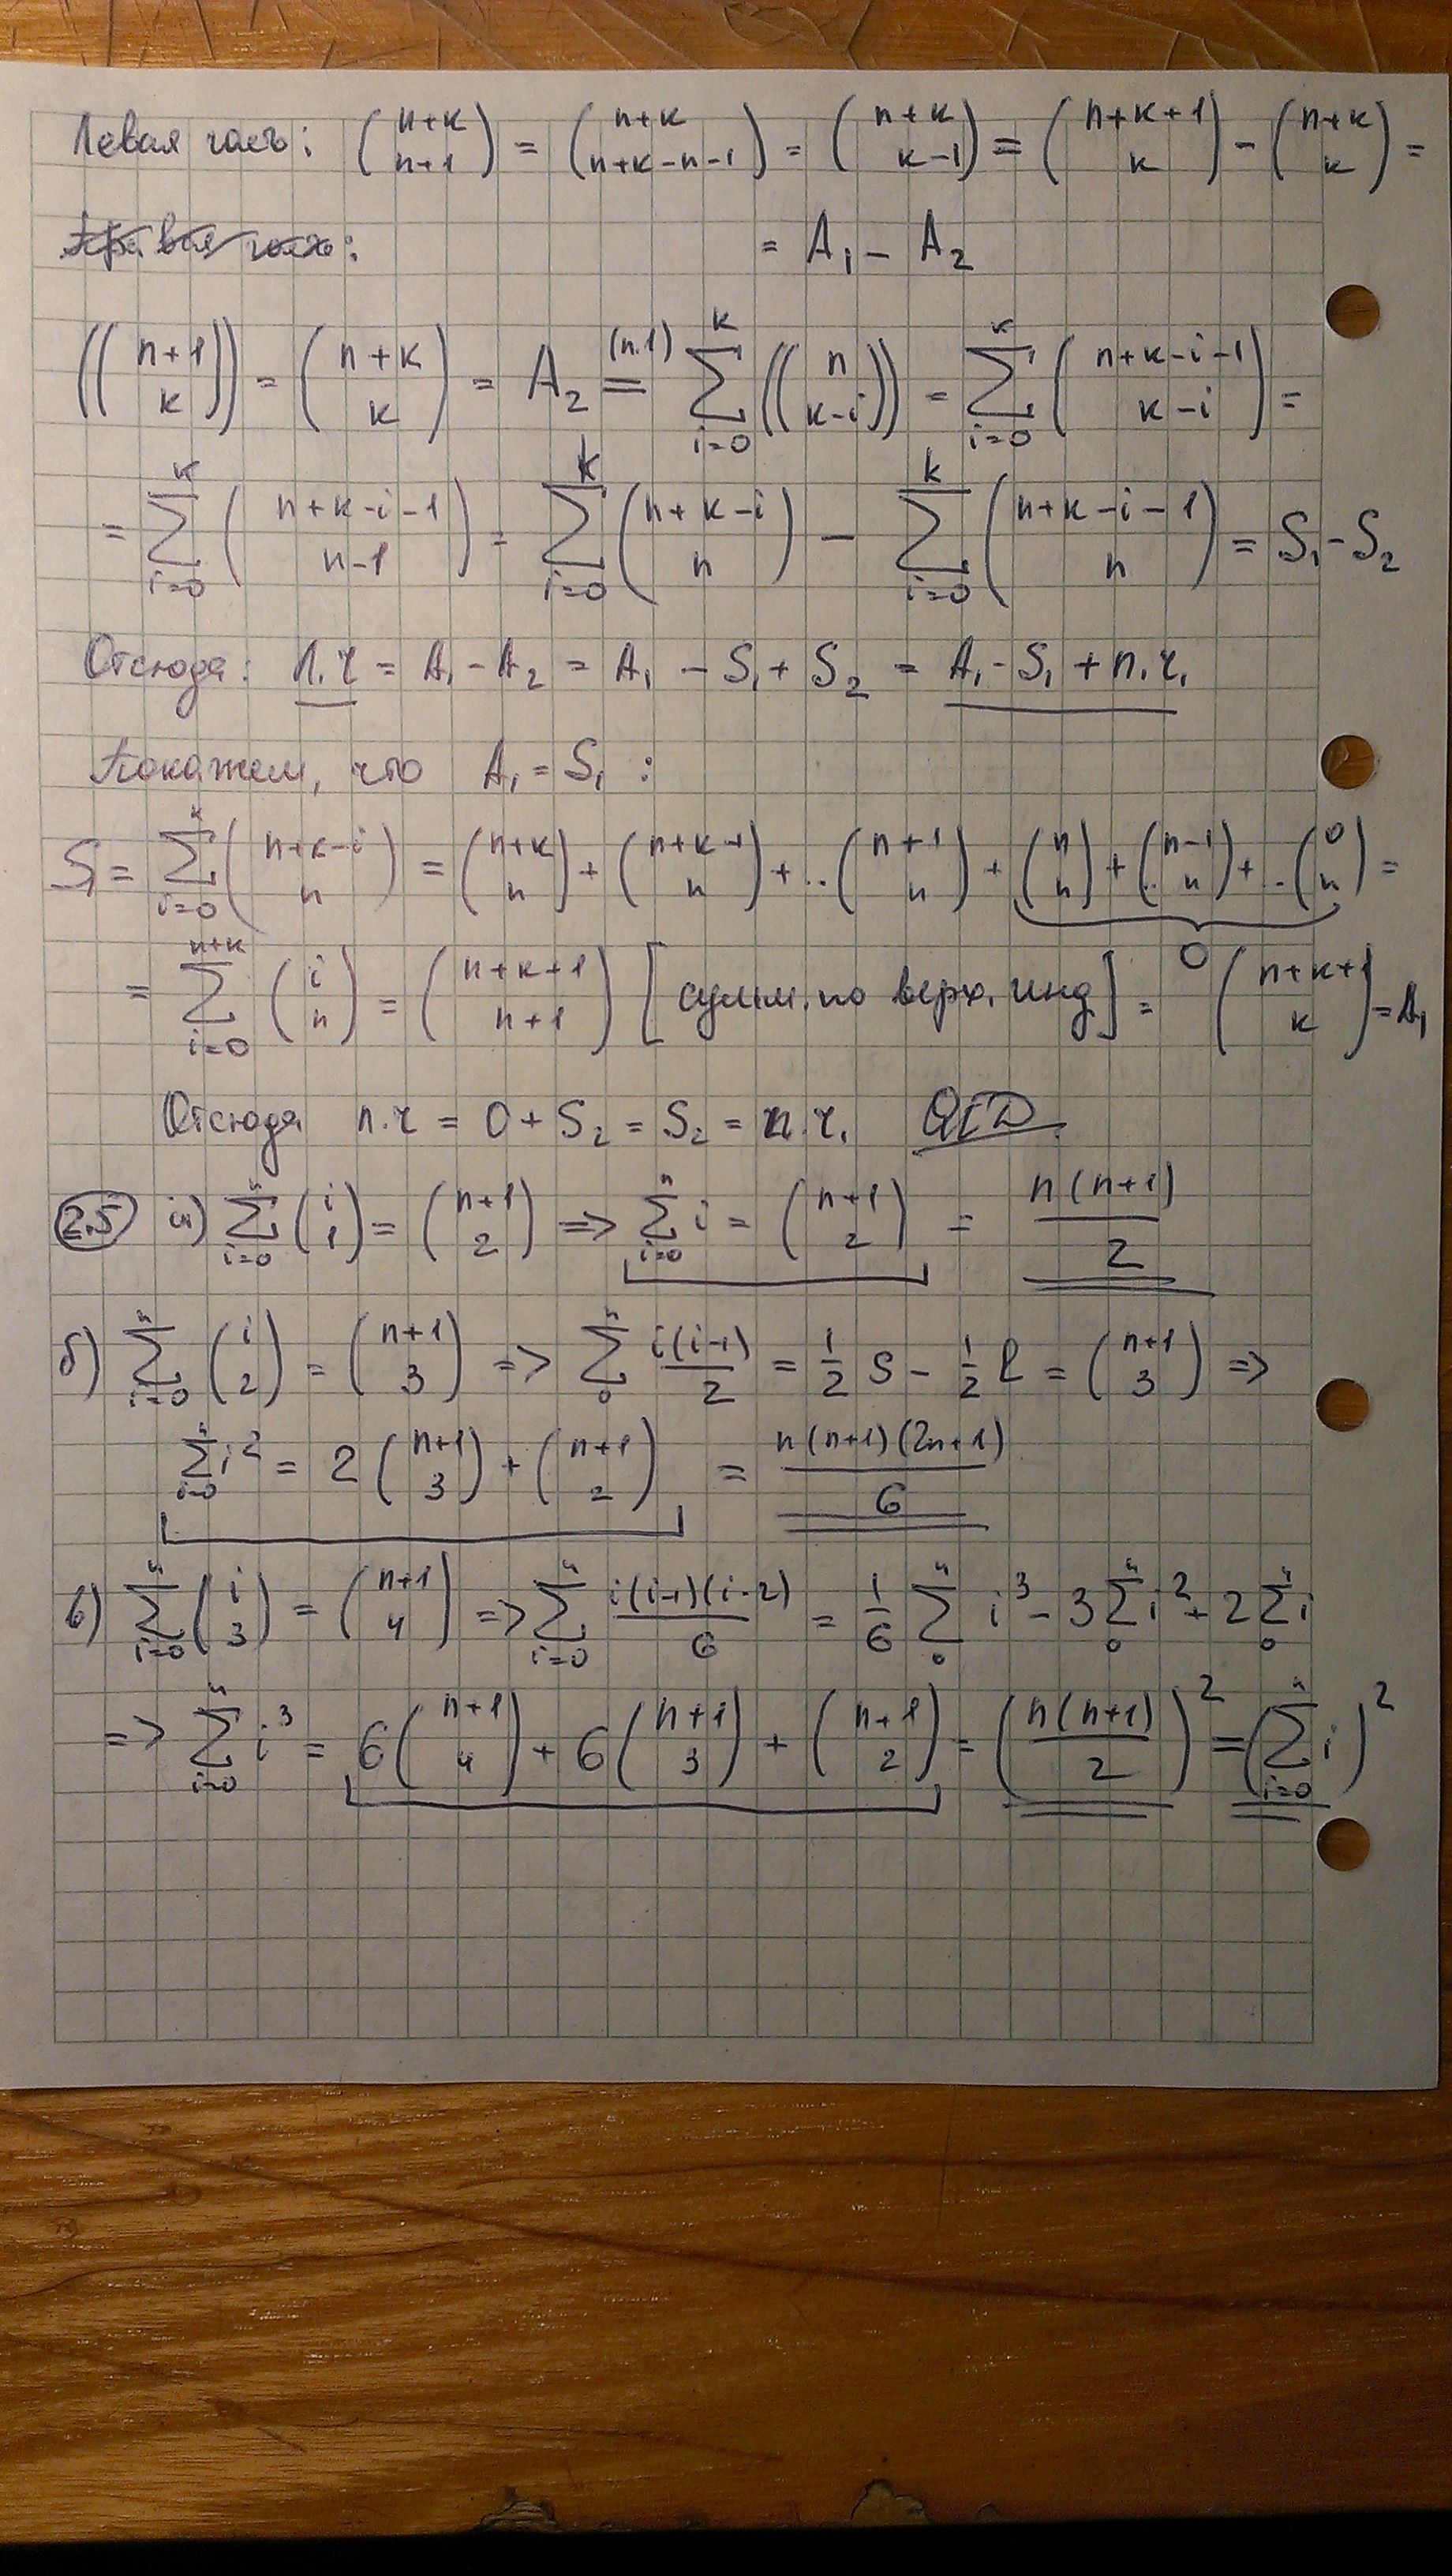 Левая часть: (n+k / n+1) = (n+k / n+k-n-1) = (n+k / k-1) = (n+k+1 / k) - (n+k / k) =
Правая часть: = A₁ - A₂
((n+1 / k)) = (n+k / k) = A₂ =^(п.1) ∑_{i=0}^{k} ((n / k-i)) = ∑_{i=0}^{k} (n+k-i-1 / k-i) =
= ∑_{i=0}^{k} (n+k-i-1 / n-1) = ∑_{i=0}^{k} (n+k-i / n) - ∑_{i=0}^{k} (n+k-i-1 / n) = S₁ - S₂
Отсюда: Л.ч = A₁ - A₂ = A₁ - S₁ + S₂ = A₁ - S₁ + п.ч.
Покажем, что A₁ = S₁ :
S₁ = ∑_{i=0}^{k} (n+k-i / n) = (n+k / n) + (n+k-1 / n) + .. (n+1 / n) + (n / n) + (n-1 / n) + .. (0 / n) =
0
= ∑_{i=0}^{n+k} (i / n) = (n+k+1 / n+1) [сумм. по верх. инд] = (n+k+1 / k) = A₁
Отсюда л.ч = 0 + S₂ = S₂ = п.ч. QED.
2.5 а) ∑_{i=0}^{n} (i / 1) = (n+1 / 2) => ∑_{i=0}^{n} i = (n+1 / 2) = n(n+1)/2
б) ∑_{i=0}^{n} (i / 2) = (n+1 / 3) => ∑_{0}^{n} i(i-1)/2 = 1/2 S - 1/2 l = (n+1 / 3) =>
∑_{i=0}^{n} i² = 2 (n+1 / 3) + (n+1 / 2) = n(n+1)(2n+1)/6
в) ∑_{i=0}^{n} (i / 3) = (n+1 / 4) => ∑_{i=0}^{n} i(i-1)(i-2)/6 = 1/6 ∑_{0}^{n} i³ - 3 ∑_{0}^{n} i² + 2 ∑_{0}^{n} i
=> ∑_{i=0}^{n} i³ = 6 (n+1 / 4) + 6 (n+1 / 3) + (n+1 / 2) = (n(n+1)/2)² = (∑_{i=0}^{n} i)²